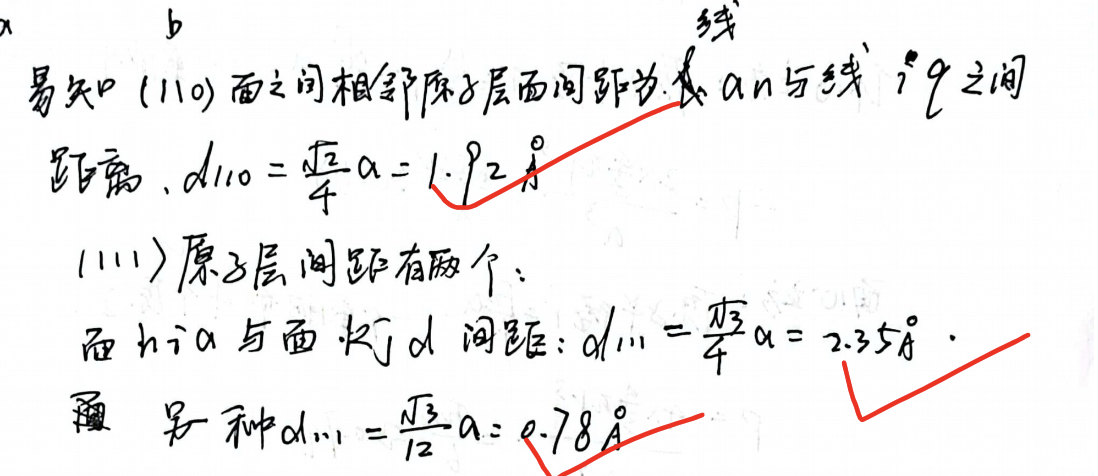 b
线
易知 (110) 面之间相邻原子层面间距为 an与线 iq 之间
距离、d110 = √2/4 a = 1.92 Å
(111) 原子层间距有两个:
面 hia 与面 kjd 间距: d111 = √3/4 a = 2.35 Å .
另一种 d111 = √3/12 a = 0.78 Å